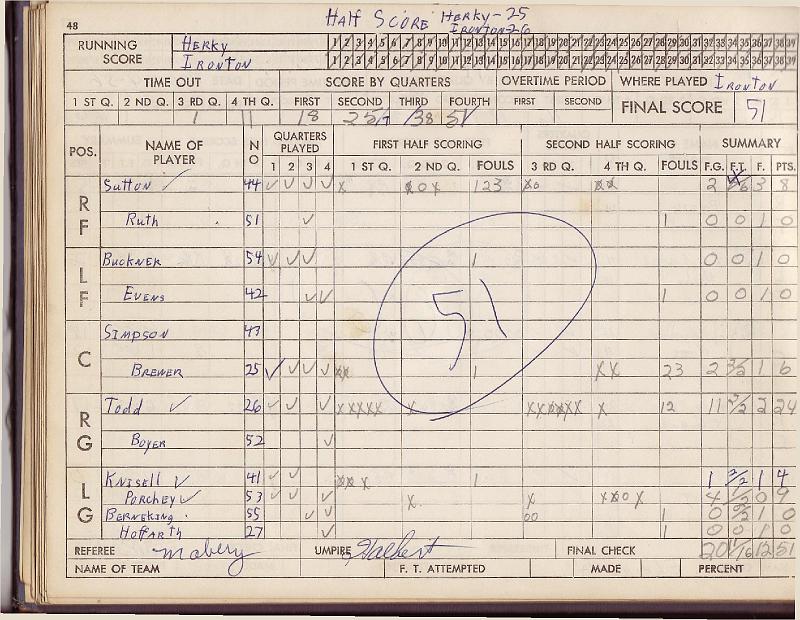 48
HALF SCORE HERKY-25
IRONTON-26
RUNNING SCORE HERKY 1 2 3 4 5 6 7 8 9 10 11 12 13 14 15 16 17 18 19 20 21 22 23 24 25 26 27 28 29 30 31 32 33 34 35 36 37 38 39
IRONTON 1 2 3 4 5 6 7 8 9 10 11 12 13 14 15 16 17 18 19 20 21 22 23 24 25 26 27 28 29 30 31 32 33 34 35 36 37 38 39
TIME OUT SCORE BY QUARTERS OVERTIME PERIOD WHERE PLAYED IRONTON
1 ST Q. 2 ND Q. 3 RD Q. 4 TH Q. FIRST SECOND THIRD FOURTH FIRST SECOND FINAL SCORE 51
1 11 18 38 51
POS. NAME OF PLAYER NO QUARTERS PLAYED FIRST HALF SCORING SECOND HALF SCORING SUMMARY
1 2 3 4 1 ST Q. 2 ND Q. FOULS 3 RD Q. 4 TH Q. FOULS F.G. F.T. F. PTS.
RF SUTTON ✓ 44 ✓ ✓ ✓ ✓ X 123 2 3 8
RUTH 51 ✓ 1 0 0 1 0
LF BUCKNER 54 ✓ ✓ ✓ 1 0 0 1 0
EVENS 42 ✓ ✓ 1 0 0 1 0
51
C SIMPSON 43
BREWER 25 ✓ ✓ ✓ ✓ XX 1 XX 23 2 1 6
RG TODD ✓ 26 ✓ ✓ ✓ XXXXX X X 12 11 2/2 2 24
BOYER 52 ✓
LG KNISELL ✓ 41 ✓ ✓ 1 1 2/2 1 4
PORCHEY ✓ 53 ✓ ✓ ✓ X X 4 1/2 0 9
BERNEKING 55 ✓ ✓ 00 1 0 0/2 1 0
HOFFARTH 27 ✓ 1 0 0 1 0
REFEREE Mabery UMPIRE Halbert FINAL CHECK 20 11/16 12 51
NAME OF TEAM F. T. ATTEMPTED MADE PERCENT